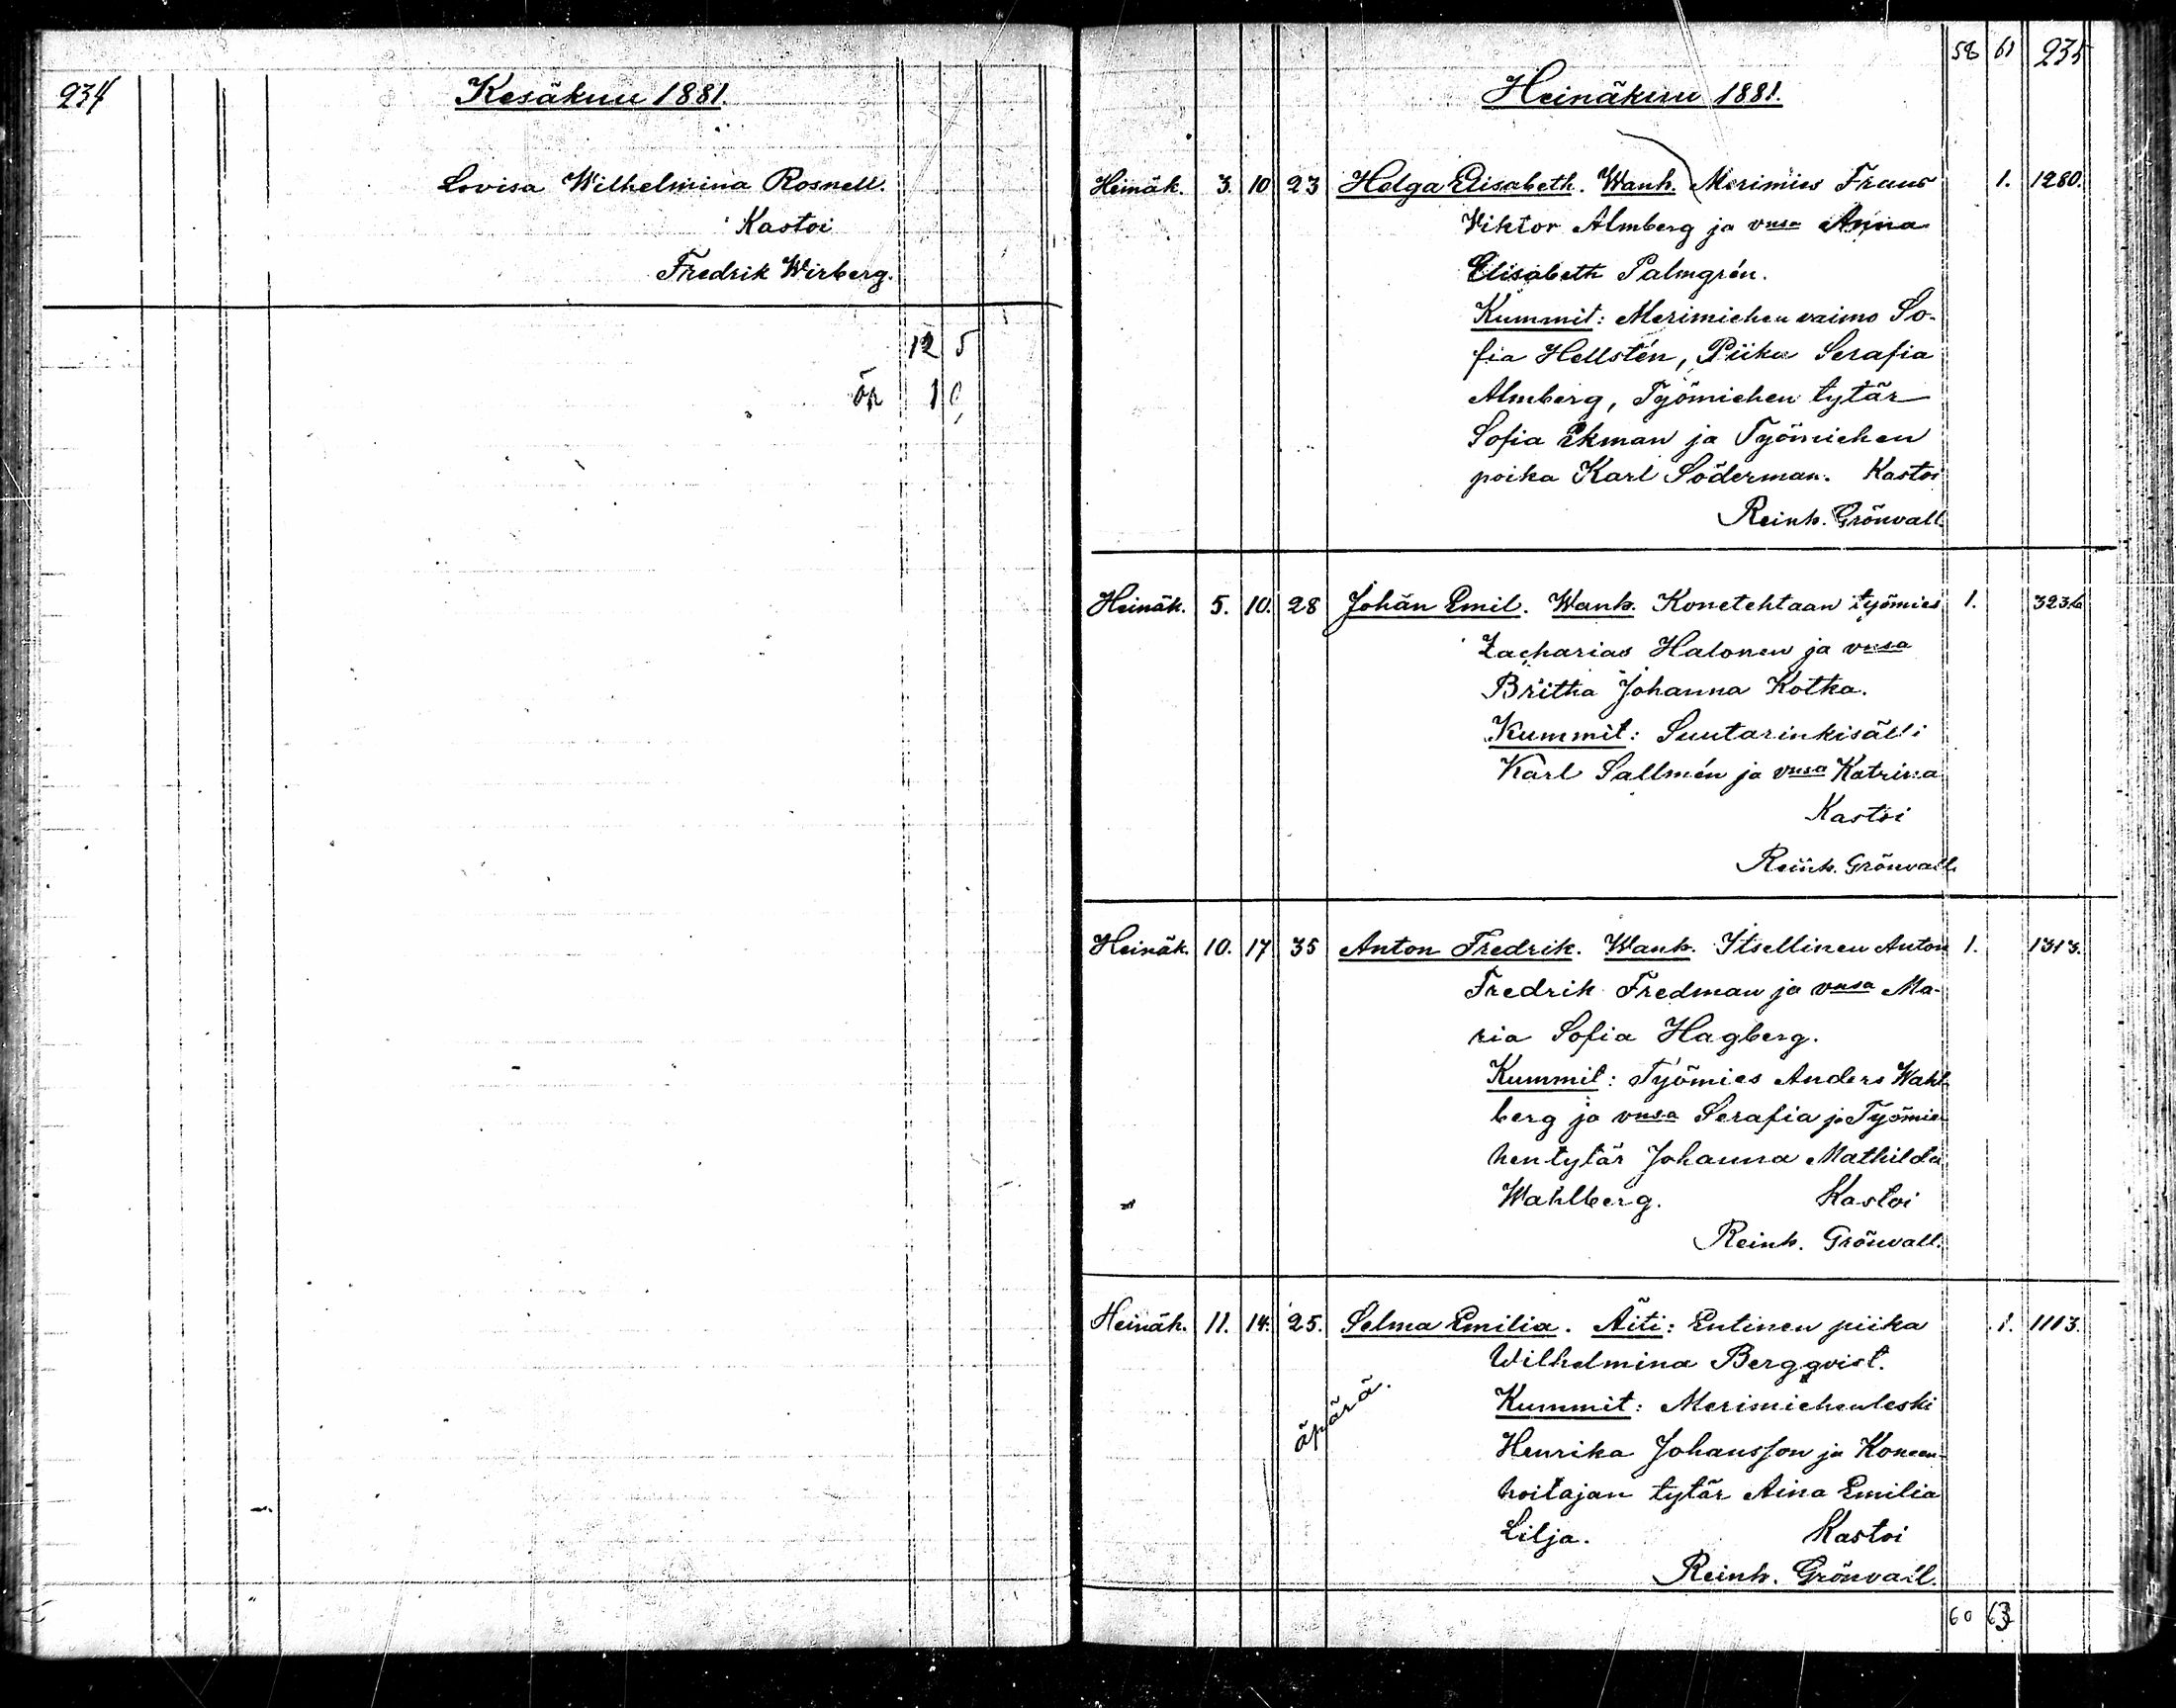 234
Kesäkuu 1881.
Lovisa Wilhelmina Rosnell.
Kastoi
Fredrik Wirberg.
12 5
äp 1 0
58 61 235
Heinäkuu 1881.
Heinäk. 3. 10 23 Helga Elisabeth. Wanh. Merimies Frans 1. 1280.
Wiktor Almberg ja vmsa Anna
Elisabeth Palmgrén.
Kummit: Merimiehen vaimo So-
fia Hellstén, Piika Serafia
Almberg, Työmiehen tytär
Sofia Ekman ja Työmiehen
poika Karl Söderman. Kastoi
Reinh. Grönvall.
Heinäk. 5. 10. 28 Johan Emil. Wanh. Konetehtaan työmies 1. 3236
Zacharias Halonen ja vmsa
Britha Johanna Kotka.
Kummit: Suutarinkisälli
Karl Sallmén ja vmsa Katrina
Kastoi
Reinh. Grönvall.
Heinäk. 10. 17 35 Anton Fredrik. Wanh. Itsellinen Anton 1. 1313.
Fredrik Fredman ja vmsa Ma-
ria Sofia Hagberg.
Kummit: Työmies Anders Wahl-
berg ja vmsa Serafia ja Työmie-
hen tytär Johanna Mathilda
Wahlberg. Kastoi
Reinh. Grönvall.
Heinäk. 11. 14. 25. Selma Emilia. Äiti: Entinen piika 1. 1113.
Wilhelmina Bergqvist.
äpärä.
Kummit: Merimiehenleski
Henrika Johansson ja Koneen-
hoitajan tytär Aina Emilia
Lilja. Kastoi
Reinh. Grönvall.
60 63